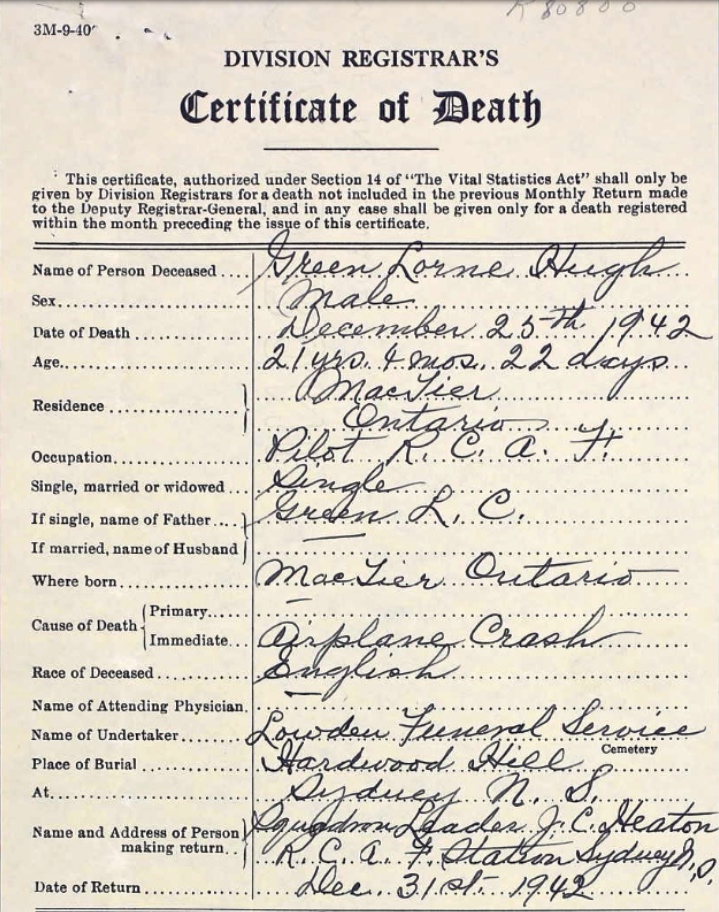 K 80800
3M-9-40
DIVISION REGISTRAR'S
Certificate of Death
This certificate, authorized under Section 14 of "The Vital Statistics Act" shall only be
given by Division Registrars for a death not included in the previous Monthly Return made
to the Deputy Registrar-General, and in any case shall be given only for a death registered
within the month preceding the issue of this certificate.
Name of Person Deceased .... Green Lorne Hugh
Sex Male
Date of Death December 25th 1942
Age 21 yrs. 4 mos. 22 days
MacTier
Residence
Ontario
Occupation Pilot R. C. A. F.
Single, married or widowed ... Single
If single, name of Father .... Green L. C.
If married, name of Husband —
Where born MacTier Ontario
Cause of Death Primary —
Immediate Airplane Crash
Race of Deceased English
Name of Attending Physician. —
Name of Undertaker Lowden Funeral Service
Place of Burial Hardwood Hill Cemetery
At Sydney N. S.
Name and Address of Person Squadron Leader J. C. Heaton
making return R. C. A. F. Station Sydney N.S.
Date of Return Dec. 31st. 1942